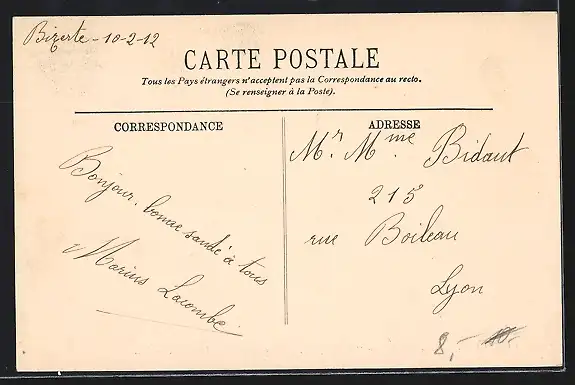 Bizerte - 10-2-12
CARTE POSTALE
Tous les Pays étrangers n'acceptent pas la Correspondance au recto.
(Se renseigner à la Poste).
CORRESPONDANCE
Bonjour. bonne santé à tous
Marius Lacombe.
ADRESSE
Mr. Mme. Bidaut
215
rue Boileau
Lyon
8,-